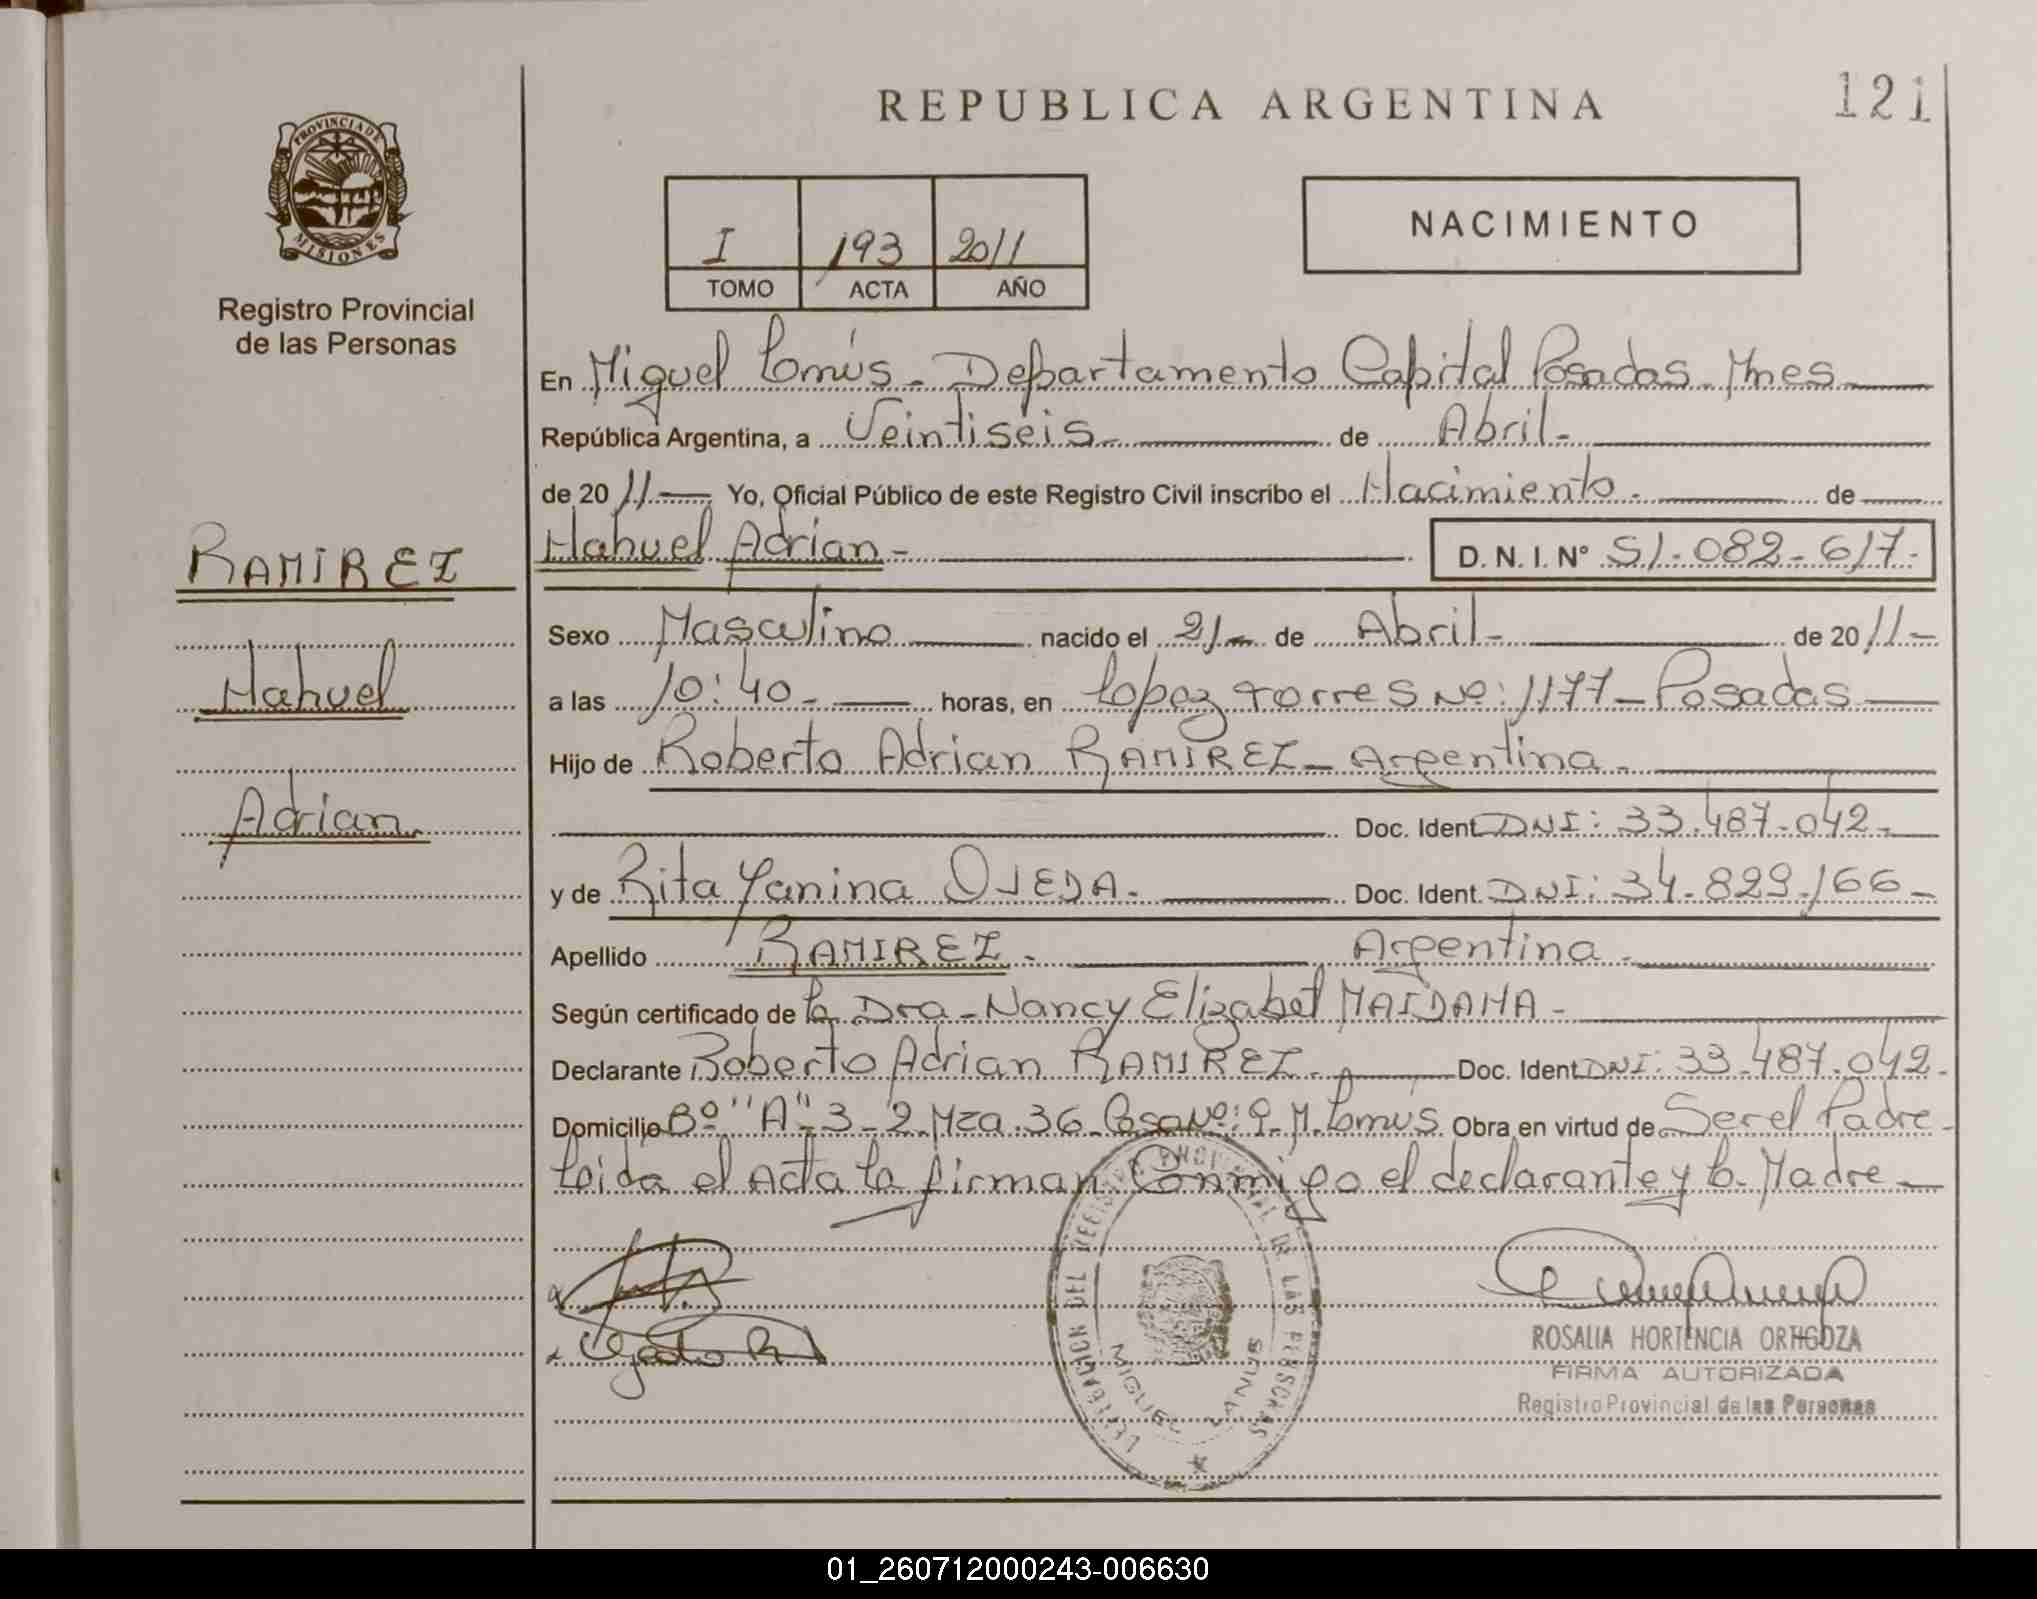 REPUBLICA ARGENTINA
121
PROVINCIA DE MISIONES
Registro Provincial
de las Personas
I 193 2011
TOMO ACTA AÑO
NACIMIENTO
En Miguel Lanús - Departamento Capital Posadas Mnes
República Argentina, a Veintiseis - de Abril -
de 2011 Yo, Oficial Público de este Registro Civil inscribo el Nacimiento - de
Nahuel Adrian -
D. N. I. N° 51-082-617-
RAMIREZ
Nahuel
Adrian
Sexo Masculino nacido el 21 - de Abril - de 2011 -
a las 10:40 - horas, en Lopez Torres Nº: 1177 - Posadas
Hijo de Roberto Adrian RAMIREZ - Argentina -
Doc. Ident. DNI: 33.487-042-
y de Rita Yanina OJEDA - Doc. Ident. DNI: 34-829-166-
Apellido RAMIREZ - Argentina -
Según certificado de la Dra - Nancy Elizabet MAIDANA -
Declarante Roberto Adrian RAMIREZ - Doc. Ident. DNI: 33-487.042-
Domicilio Bº "A" - 3 - 2 Mza. 36 Casa Nº: 9 - M. Lanús Obra en virtud de Ser el Padre -
Leida el Acta la firman Conmigo el declarante y la Madre
DELEGACION DEL REGISTRO PROVINCIAL DE LAS PERSONAS
MIGUEL LANUS
ROSALIA HORTENCIA ORTIGOZA
FIRMA AUTORIZADA
Registro Provincial de las Personas
01_260712000243-006630